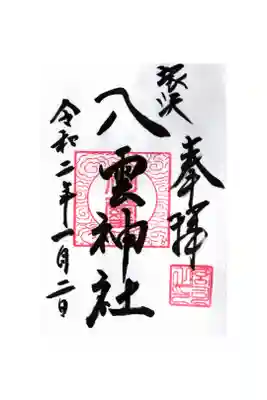 奉拝
塚沢
八雲神社
令和二年一月二日